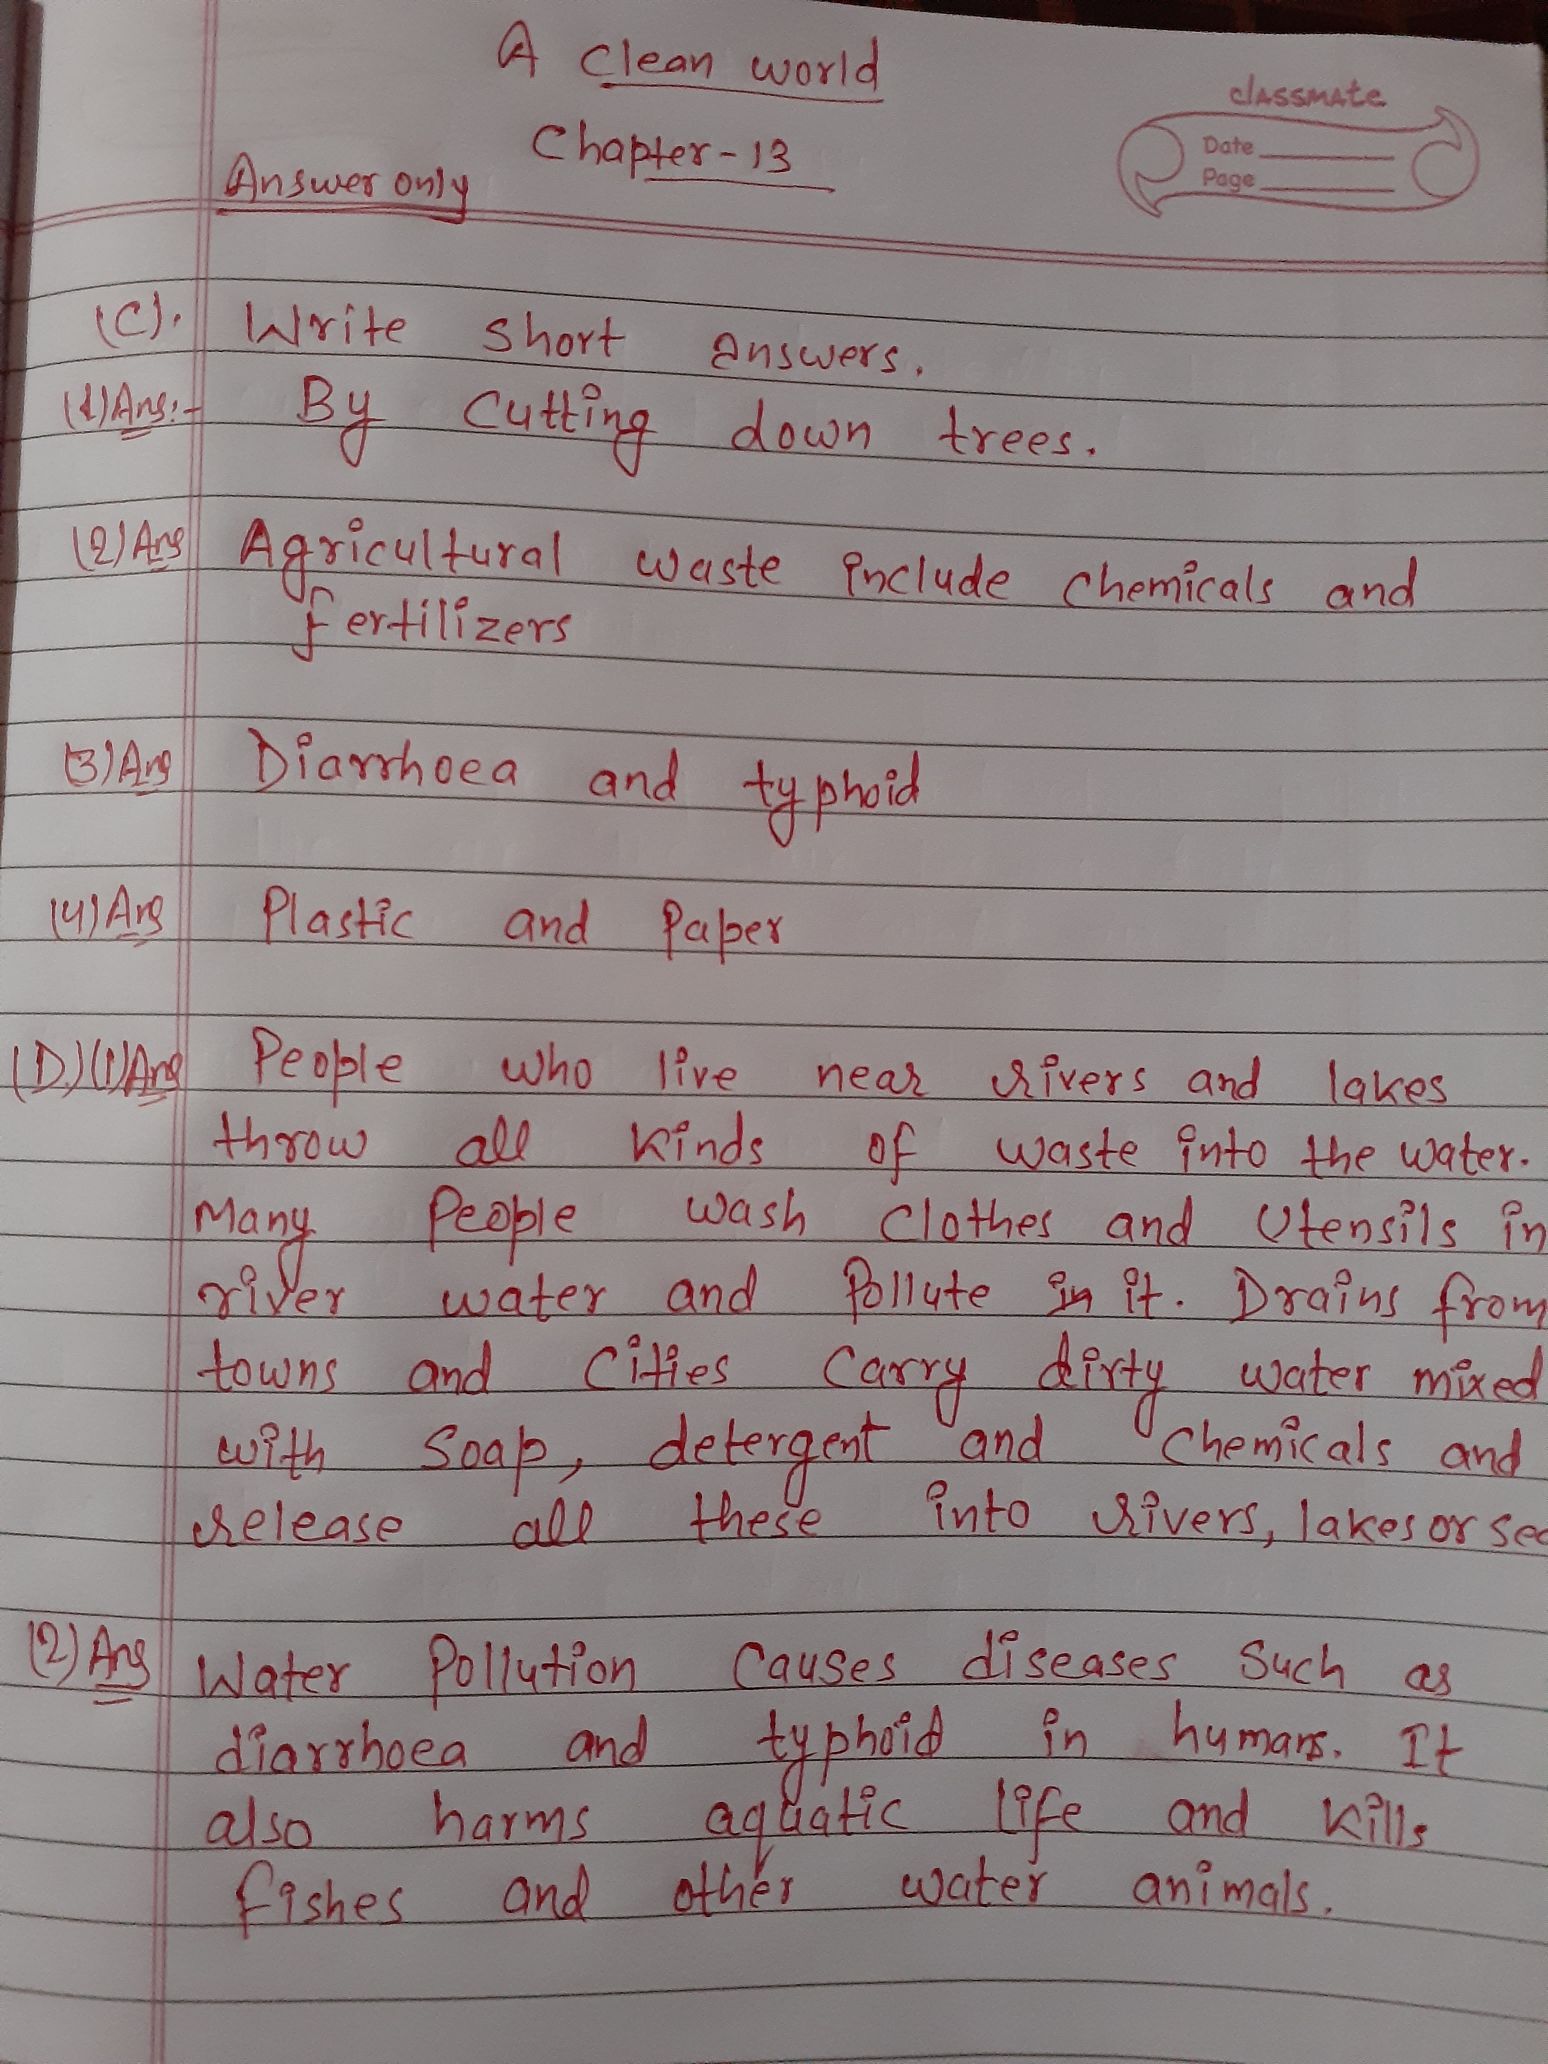 A clean world
classmate
Chapter-13
Date
Page
Answer only
(C). Write short answers.
(1) Ans:- By cutting down trees.
(2) Ans Agricultural waste include chemicals and
fertilizers
(3) Ans Diarrhoea and typhoid
(4) Ans Plastic and Paper
(D.) (1) Ans People who live near rivers and lakes
throw all kinds of waste into the water.
Many People wash clothes and Utensils in
river water and Pollute in it. Drains from
towns and cities carry dirty water mixed
with soap, detergent and chemicals and
release all these into rivers, lakes or sea
(2) Ans Water Pollution causes diseases such as
diarrhoea and typhoid in humans. It
also harms aquatic life and kills
fishes and other water animals.